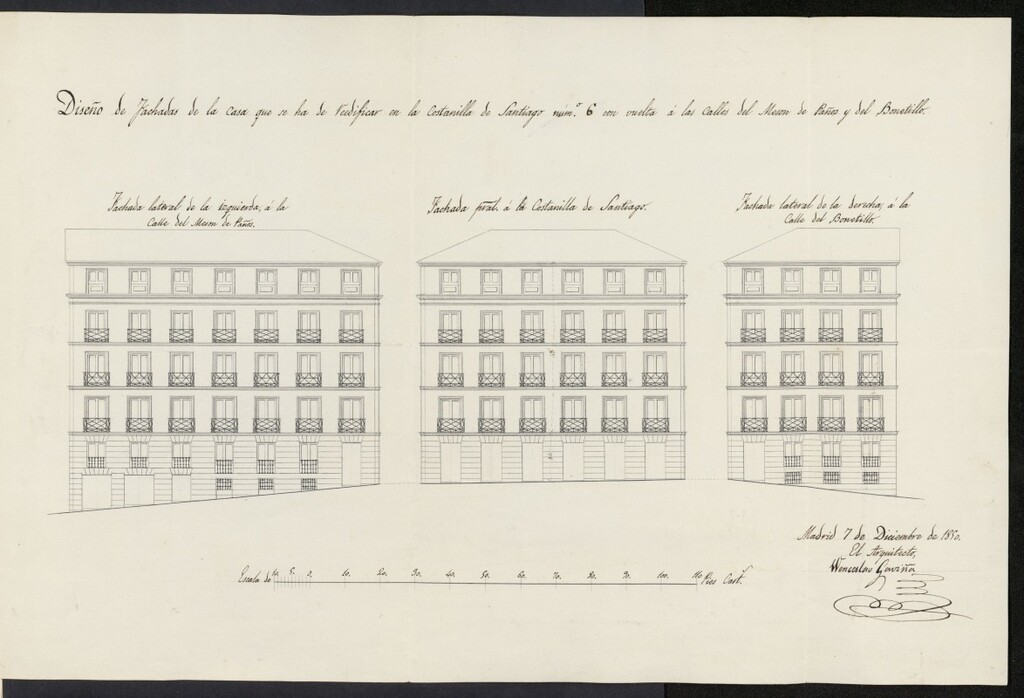 Diseño de Fachadas de la casa que se ha de reedificar en la Costanilla de Santiago núm.º 6 con vuelta á las Calles del Meson de Paños y del Bonetillo.
Fachada lateral de la izquierda, á la
Calle del Meson de Paños.
Fachada pral. á la Costanilla de Santiago.
Fachada lateral de la derecha, á la
Calle del Bonetillo.
Madrid 7 de Diciembre de 1850.
El Arquitecto,
Wenceslao Gaviña
Escala de 10. 5. 0. 10. 20. 30. 40. 50. 60. 70. 80. 90. 100. 110 Pies Cast.s